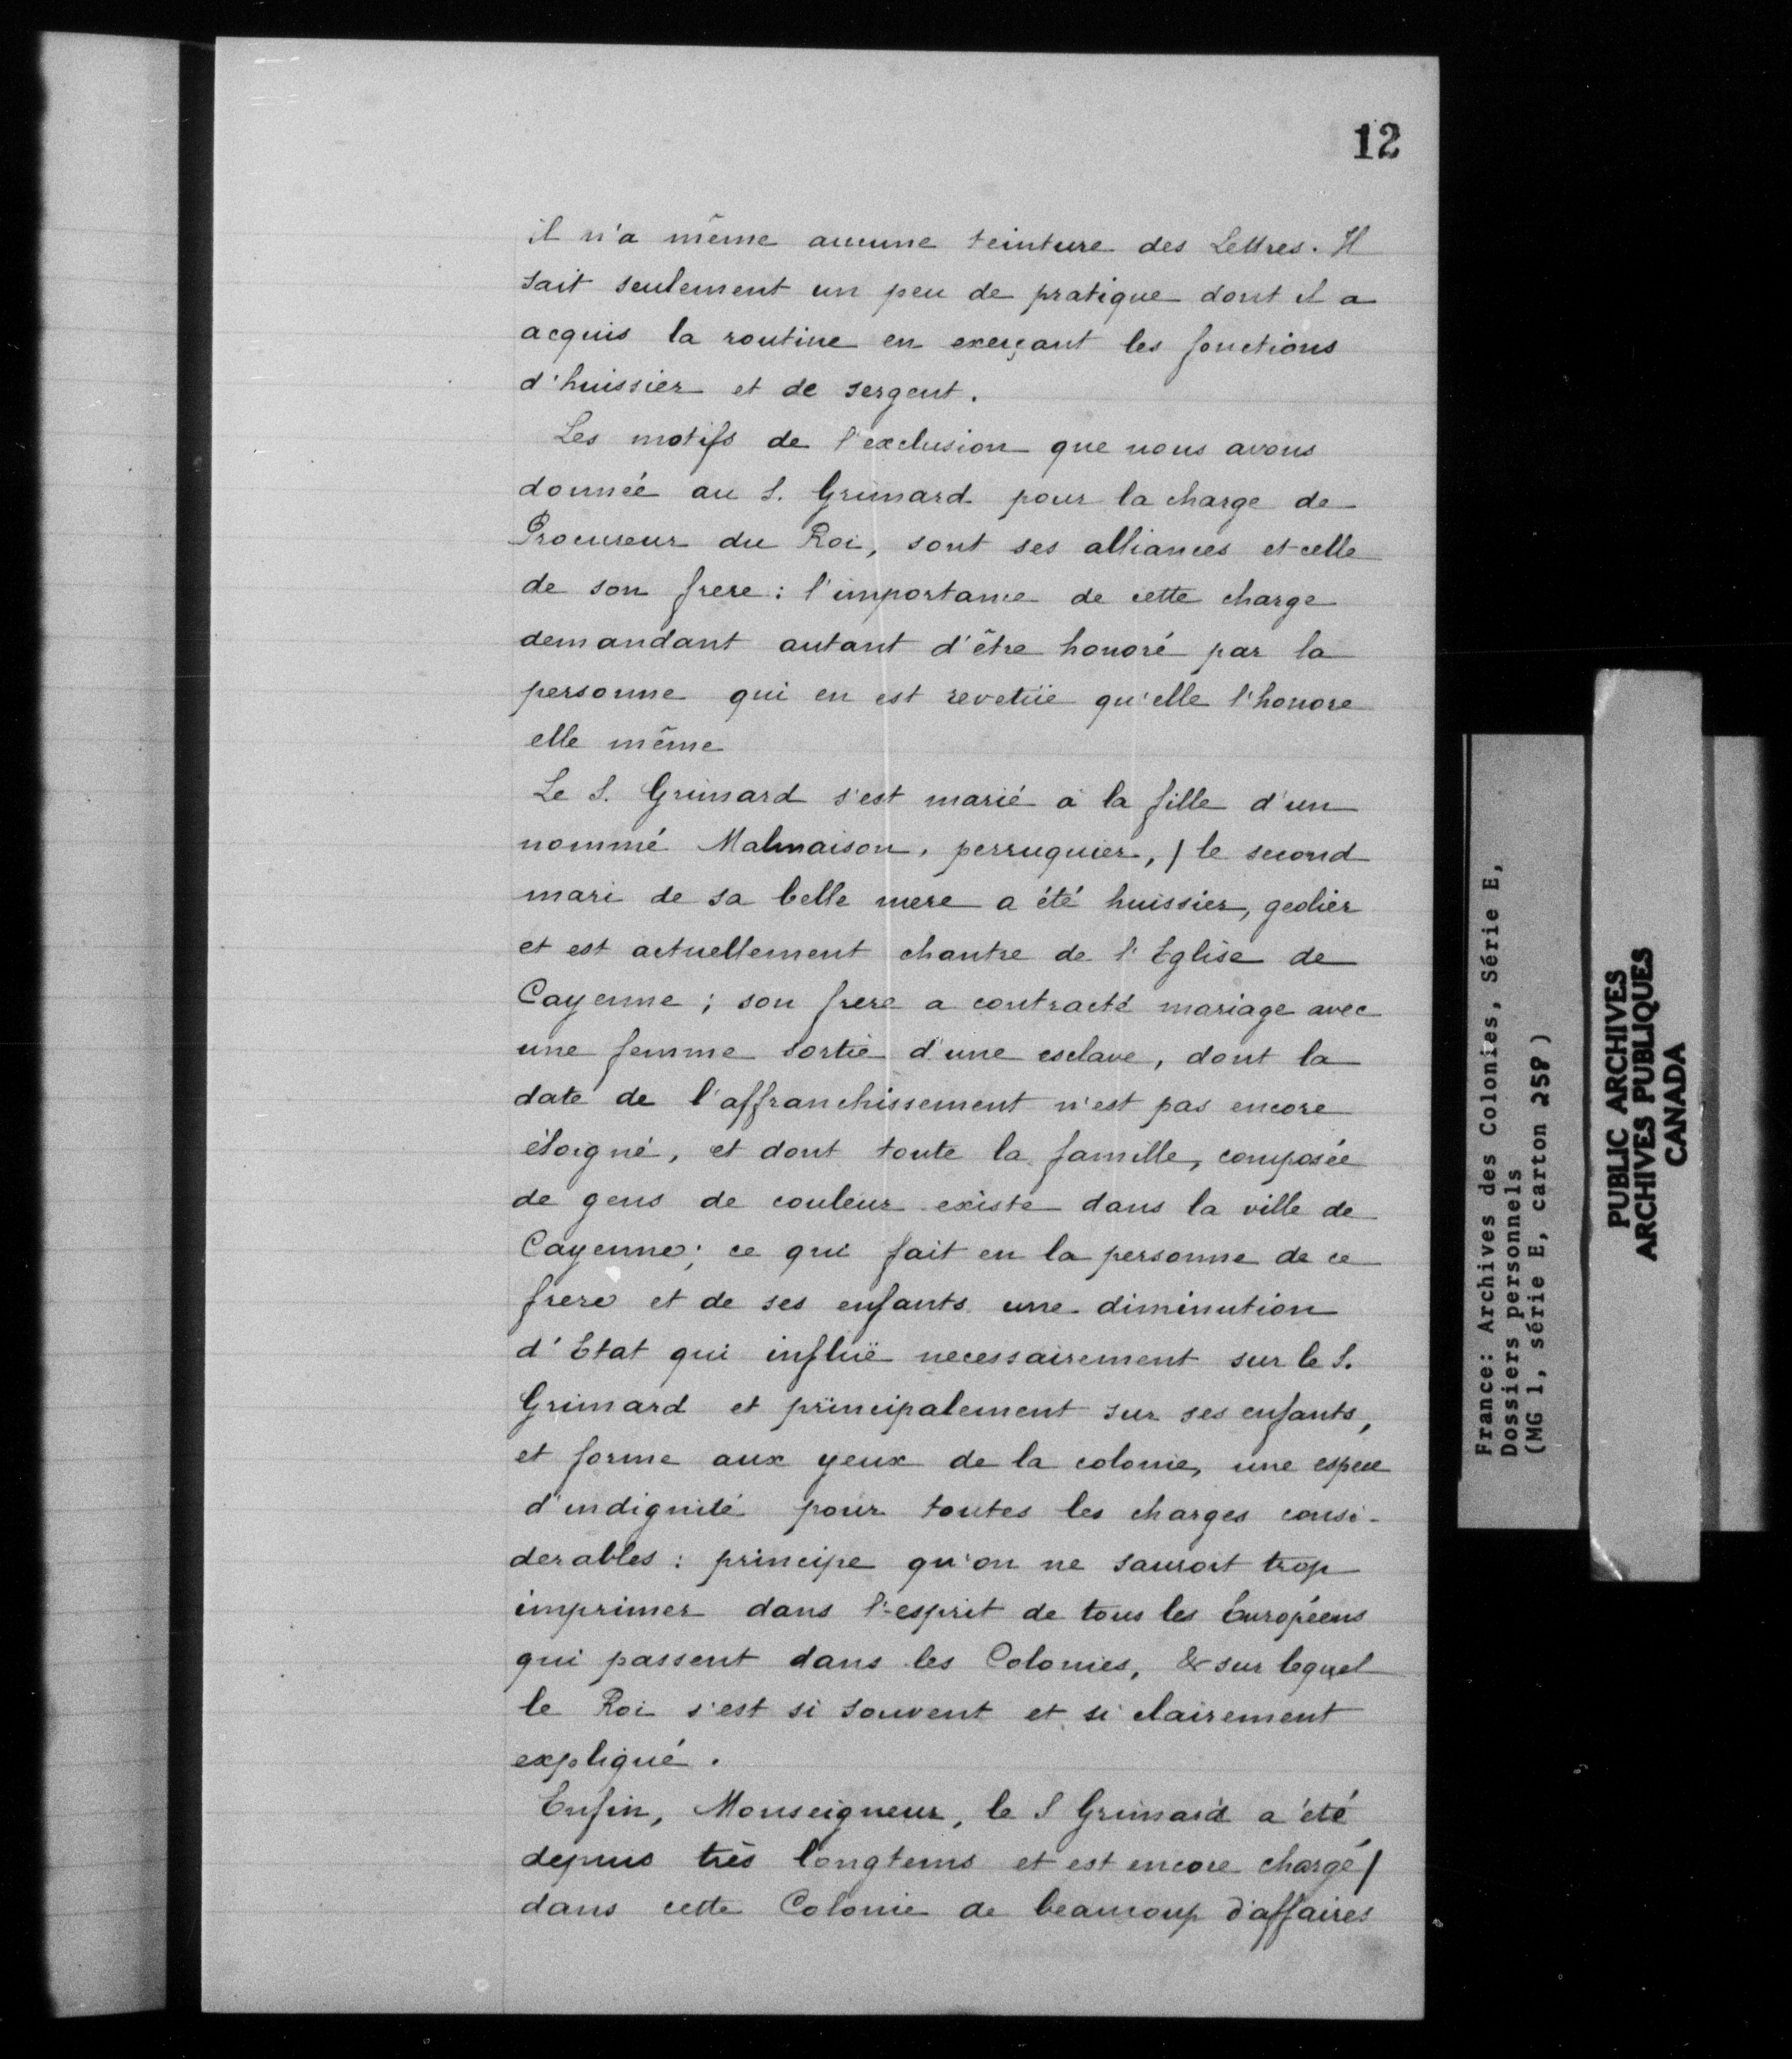 12
il n'a même aucune teinture des Lettres. Il
sait seulement un peu de pratique dont il a
acquis la routine en exerçant les fonctions
d'huissier et de sergent.
Les motifs de l'exclusion que nous avons
donnée au S. Grimard pour la charge de
Procureur du Roi, sont ses alliances et celle
de son frere : l'importance de cette charge
demandant autant d'être honoré par la
personne qui en est revetüe qu'elle l'honore
elle même
Le S. Grimard s'est marié à la fille d'un
nommé Malmaison, perruquier, / le second
mari de sa belle mere a été huissier, geolier
et est actuellement chantre de l'Eglise de
Cayenne ; son frere a contracté mariage avec
une femme sortie d'une esclave, dont la
date de l'affranchissement n'est pas encore
éloigné, et dont toute la famille, composée
de gens de couleur existe dans la ville de
Cayenne ; ce qui fait en la personne de ce
frere et de ses enfants une diminution
d'Etat qui influë necessairement sur le S.
Grimard et principalement sur ses enfants,
et forme aux yeux de la colonie, une espece
d'indignité pour toutes les charges consi-
derables : principe qu'on ne sauroit trop
imprimer dans l'esprit de tous les Européens
qui passent dans les Colonies, & sur lequel
le Roi s'est si souvent et si clairement
expliqué.
Enfin, Monseigneur, le S Grimard a été
depuis très longtems et est encore chargé /
dans cette Colonie de beaucoup d'affaires
France: Archives des Colonies, Série E,
Dossiers personnels
(MG 1, série E, carton 258)
PUBLIC ARCHIVES
ARCHIVES PUBLIQUES
CANADA